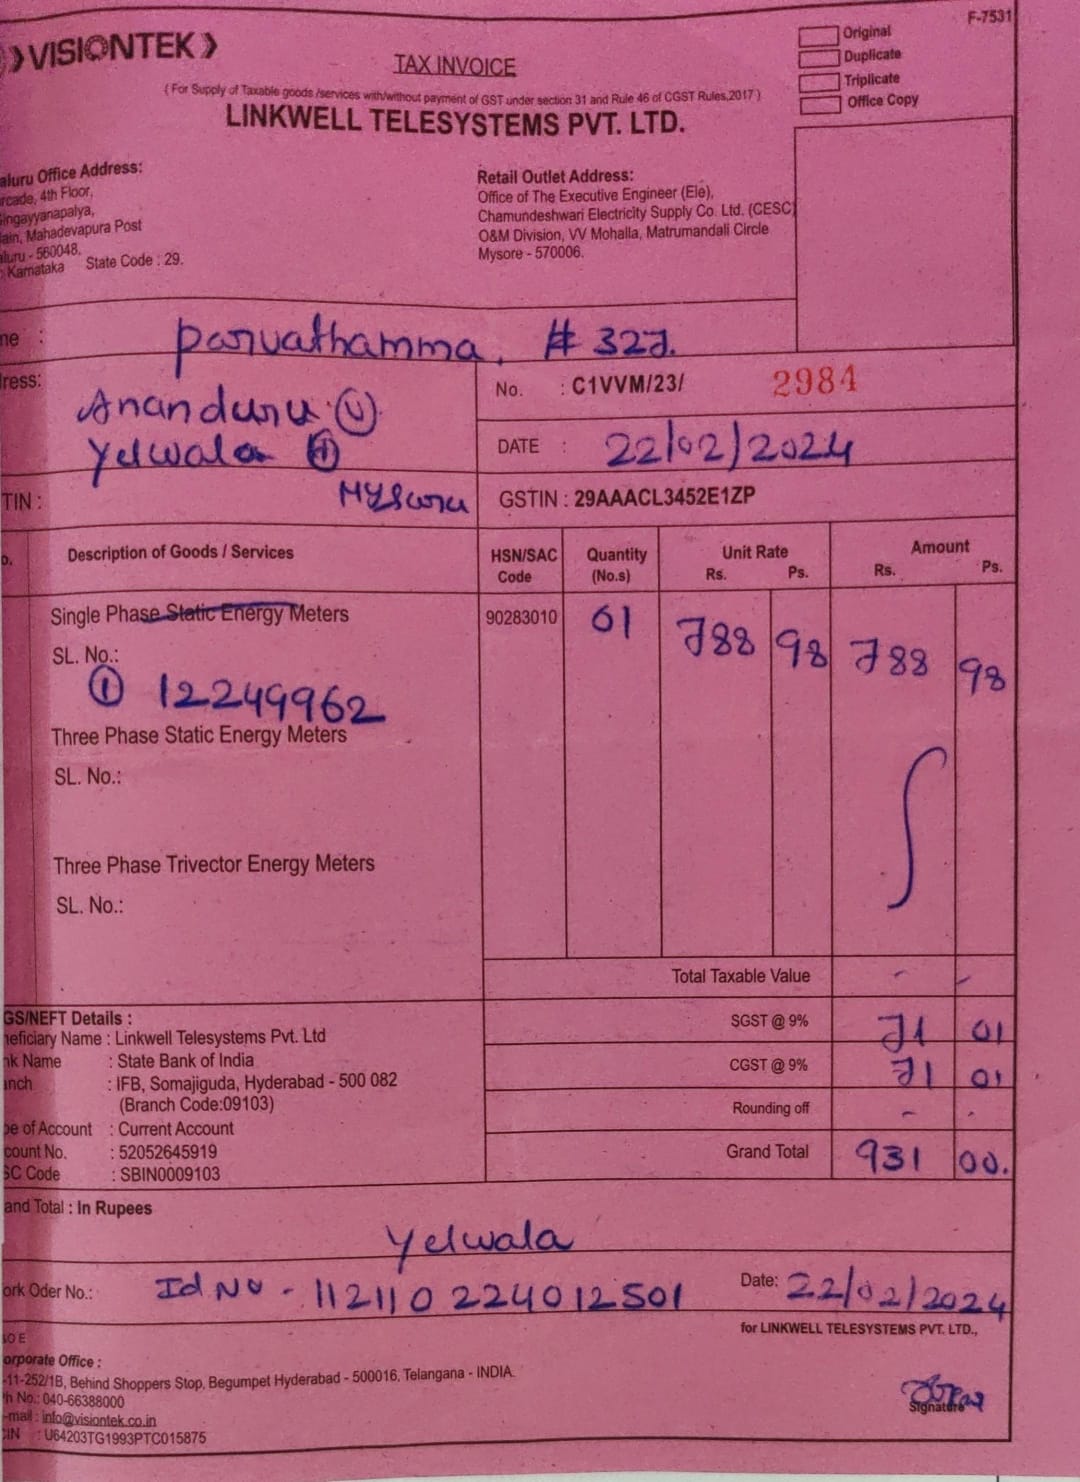 F-7531
VISIONTEK
Original
Duplicate
Triplicate
Office Copy
TAX INVOICE
(For Supply of Taxable goods /services with/without payment of GST under section 31 and Rule 46 of CGST Rules,2017)
LINKWELL TELESYSTEMS PVT. LTD.
aluru Office Address:
rcade, 4th Floor,
ingayyanapalya,
ain, Mahadevapura Post
aluru - 560048.
: Karnataka State Code : 29.
Retail Outlet Address:
Office of The Executive Engineer (Ele),
Chamundeshwari Electricity Supply Co. Ltd. (CESC)
O&M Division, VV Mohalla, Matrumandali Circle
Mysore - 570006.
me : Parvathamma, # 327.
ress: Ananduru (V)
Yelwala (H)
Mysuru
No. : C1VVM/23/ 2984
DATE : 22/02/2024
TIN :
GSTIN : 29AAACL3452E1ZP
o. Description of Goods / Services HSN/SAC Code Quantity (No.s) Unit Rate Rs. Ps. Amount Rs. Ps.
Single Phase Static Energy Meters 90283010 01 788 98 788 98
SL. No.:
① 12249962
Three Phase Static Energy Meters
SL. No.:
Three Phase Trivector Energy Meters
SL. No.:
Total Taxable Value - -
SGST @ 9% 71 01
CGST @ 9% 71 01
Rounding off - -
Grand Total 931 00.
GS/NEFT Details :
neficiary Name : Linkwell Telesystems Pvt. Ltd
nk Name : State Bank of India
anch : IFB, Somajiguda, Hyderabad - 500 082
(Branch Code:09103)
pe of Account : Current Account
count No. : 52052645919
SC Code : SBIN0009103
and Total : In Rupees
Yelwala
ork Oder No.: Id No - 112110224012501 Date: 22/02/2024
for LINKWELL TELESYSTEMS PVT. LTD.,
&OE
orporate Office :
-11-252/1B, Behind Shoppers Stop, Begumpet Hyderabad - 500016, Telangana - INDIA.
h No.: 040-66388000
-mail : info@visiontek.co.in
CIN : U64203TG1993PTC015875
Signature